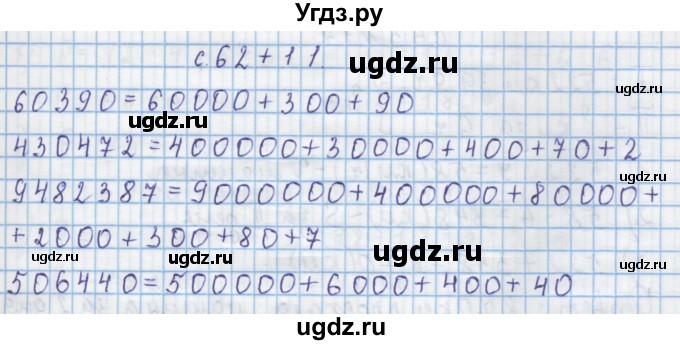 Угдз.ру
с. 62 + 11.
ugdz.ru
60390 = 60000 + 300 + 90
ugdz.ru
430472 = 400000 + 30000 + 400 + 70 + 2
ugdz.ru
ugdz.ru
9482387 = 9000000 + 400000 + 80000 +
+ 2000 + 300 + 80 + 7
ugdz.ru
ugdz.ru
ugdz.ru
506440 = 500000 + 6000 + 400 + 40
ugdz.ru
ugdz.ru